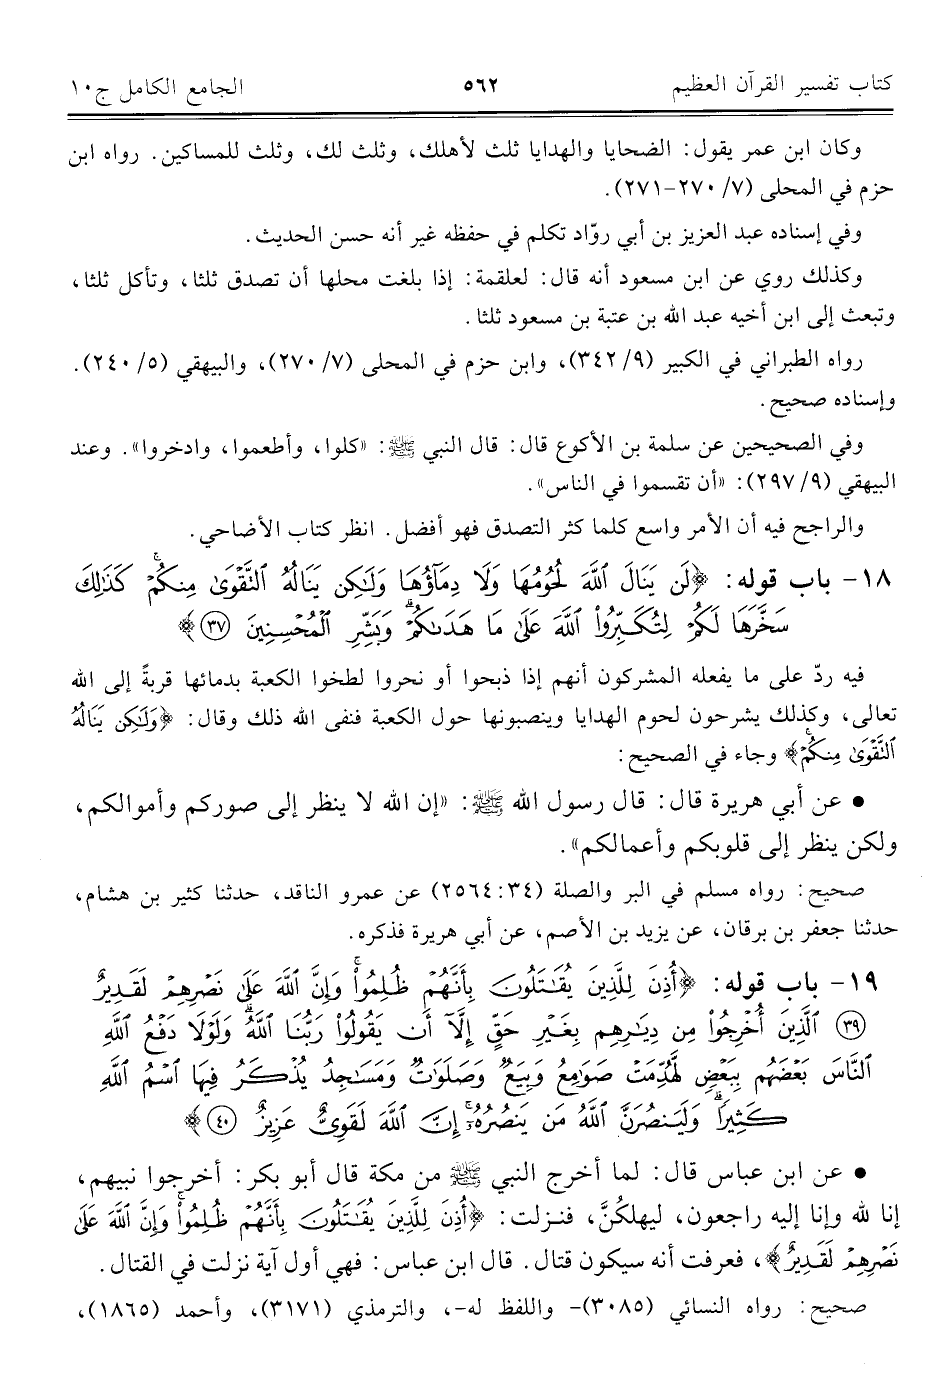 كتاب تفسير القرآن العظيم ٥٦٢ الجامع الكامل ج١٠
وكان ابن عمر يقول: الضحايا والهدايا ثلث لأهلك، وثلث لك، وثلث للمساكين. رواه ابن
حزم في المحلى (٧/ ٢٧٠-٢٧١).
وفي إسناده عبد العزيز بن أبي روّاد تكلم في حفظه غير أنه حسن الحديث.
وكذلك روي عن ابن مسعود أنه قال: لعلقمة: إذا بلغت محلها أن تصدق ثلثا، وتأكل ثلثا،
وتبعث إلى ابن أخيه عبد الله بن عتبة بن مسعود ثلثا.
رواه الطبراني في الكبير (٩/ ٣٤٢)، وابن حزم في المحلى (٧/ ٢٧٠)، والبيهقي (٥/ ٢٤٠).
وإسناده صحيح.
وفي الصحيحين عن سلمة بن الأكوع قال: قال النبي ﷺ: «كلوا، وأطعموا، وادخروا». وعند
البيهقي (٩/ ٢٩٧): «أن تقسموا في الناس».
والراجح فيه أن الأمر واسع كلما كثر التصدق فهو أفضل. انظر كتاب الأضاحي.
١٨- باب قوله: ﴿لَن يَنَالَ ٱللَّهَ لُحُومُهَا وَلَا دِمَآؤُهَا وَلَٰكِن يَنَالُهُ ٱلتَّقْوَىٰ مِنكُمْۚ كَذَٰلِكَ
سَخَّرَهَا لَكُمْ لِتُكَبِّرُوا۟ ٱللَّهَ عَلَىٰ مَا هَدَىٰكُمْۗ وَبَشِّرِ ٱلْمُحْسِنِينَ ٣٧﴾
فيه ردّ على ما يفعله المشركون أنهم إذا ذبحوا أو نحروا لطخوا الكعبة بدمائها قربةً إلى الله
تعالى، وكذلك يشرحون لحوم الهدايا وينصبونها حول الكعبة فنفى الله ذلك وقال: ﴿وَلَٰكِن يَنَالُهُ
ٱلتَّقْوَىٰ مِنكُمْۚ﴾ وجاء في الصحيح:
• عن أبي هريرة قال: قال رسول الله ﷺ: «إن الله لا ينظر إلى صوركم وأموالكم،
ولكن ينظر إلى قلوبكم وأعمالكم».
صحيح: رواه مسلم في البر والصلة (٢٥٦٤:٣٤) عن عمرو الناقد، حدثنا كثير بن هشام،
حدثنا جعفر بن برقان، عن يزيد بن الأصم، عن أبي هريرة فذكره.
١٩- باب قوله: ﴿أُذِنَ لِلَّذِينَ يُقَٰتَلُونَ بِأَنَّهُمْ ظُلِمُوا۟ۚ وَإِنَّ ٱللَّهَ عَلَىٰ نَصْرِهِمْ لَقَدِيرٌ
٣٩ ٱلَّذِينَ أُخْرِجُوا۟ مِن دِيَٰرِهِم بِغَيْرِ حَقٍّ إِلَّآ أَن يَقُولُوا۟ رَبُّنَا ٱللَّهُۗ وَلَوْلَا دَفْعُ ٱللَّهِ
ٱلنَّاسَ بَعْضَهُم بِبَعْضٍ لَّهُدِّمَتْ صَوَٰمِعُ وَبِيَعٌ وَصَلَوَٰتٌ وَمَسَٰجِدُ يُذْكَرُ فِيهَا ٱسْمُ ٱللَّهِ
كَثِيرًاۗ وَلَيَنصُرَنَّ ٱللَّهُ مَن يَنصُرُهُۥٓۚ إِنَّ ٱللَّهَ لَقَوِىٌّ عَزِيزٌ ٤٠﴾
• عن ابن عباس قال: لما أخرج النبي ﷺ من مكة قال أبو بكر: أخرجوا نبيهم،
إنا لله وإنا إليه راجعون، ليهلكُنَّ، فنزلت: ﴿أُذِنَ لِلَّذِينَ يُقَٰتَلُونَ بِأَنَّهُمْ ظُلِمُوا۟ۚ وَإِنَّ ٱللَّهَ عَلَىٰ
نَصْرِهِمْ لَقَدِيرٌ﴾، فعرفت أنه سيكون قتال. قال ابن عباس: فهي أول آية نزلت في القتال.
صحيح: رواه النسائي (٣٠٨٥)- واللفظ له-، والترمذي (٣١٧١)، وأحمد (١٨٦٥)،